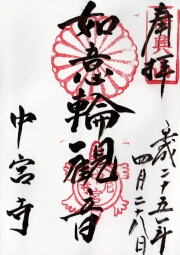 奉拝
平成二十五年
四月二十八日
如意輪観音
中宮寺